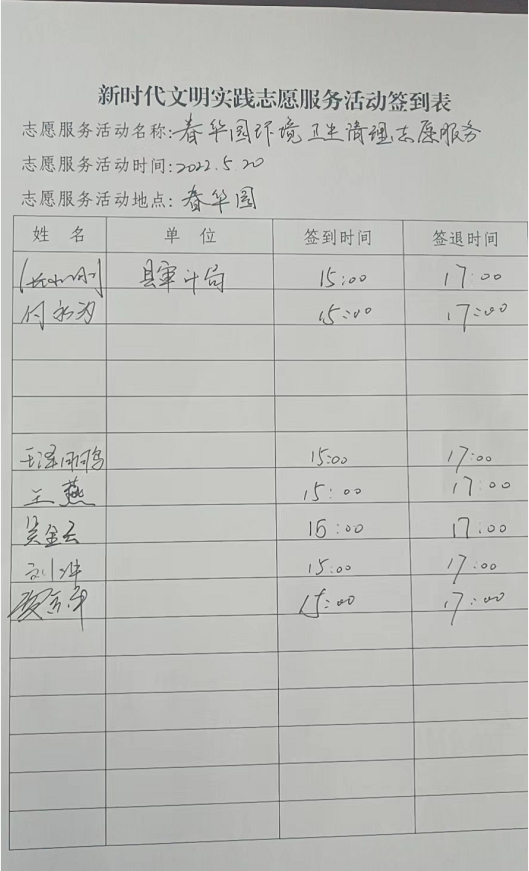 新时代文明实践志愿服务活动签到表
志愿服务活动名称:春华园环境卫生清理志愿服务
志愿服务活动时间:2022.5.20
志愿服务活动地点:春华园
姓 名 单 位 签到时间 签退时间
县审计局 15:00 17:00
15:00 17:00
15:00 17:00
王燕 15:00 17:00
吴金云 15:00 17:00
15:00 17:00
15:00 17:00